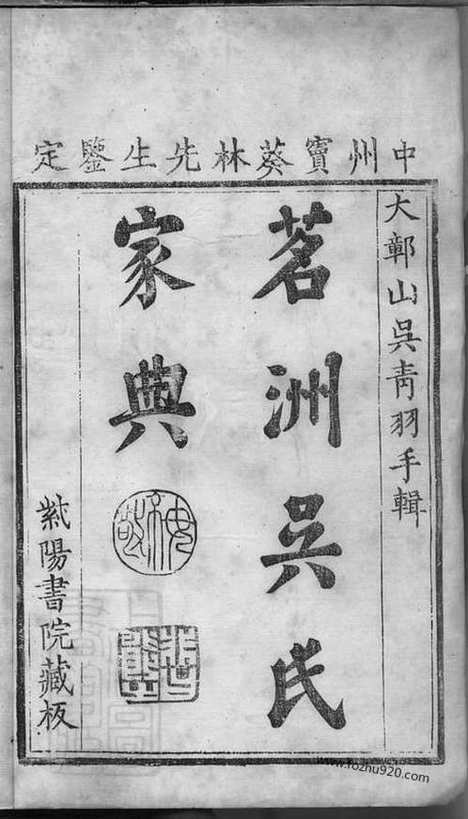 中州竇葵林先生鑒定
大鄣山吳青羽手輯
茗洲吳氏
家典
紫陽書院藏板
www.fozhu920.com